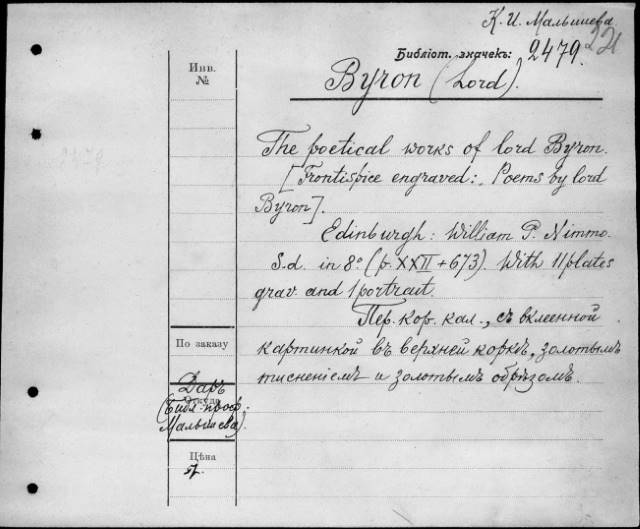 К. И. Малышева
221
Библіот. значекъ: 2479.
Инв.
№
Byron (Lord).
The poetical works of lord Byron.
[Frontispice engraved:, Poems by lord
Byron].
Edinburgh: William P. Nimmo.
S.d. in 8º. (p. XXII + 673). With 11 plates
grav. and 1 portrait.
Пер. кор. кал., съ вклеенной
картинкой въ верхней коркѣ, золотымъ
тисненіемъ и золотымъ обрѣзомъ.
По заказу
Даръ
Откуда
(Библ. проф.
Малышева)
Цѣна